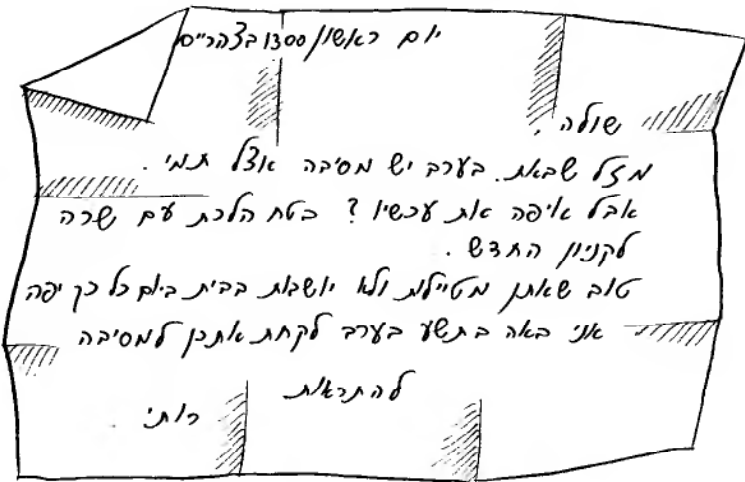 יום ראשון 1300 בצהריים
שולה,
מזל שבאת. בערב יש מסיבה אצל תמי.
אבל איפה את עכשיו? בטח הלכת עם שרה
לקניון החדש.
טוב שאתן מטיילות ולא יושבות בבית ביום כל כך יפה
אני באה בתשע בערב לקחת אתכן למסיבה
להתראות
רותי